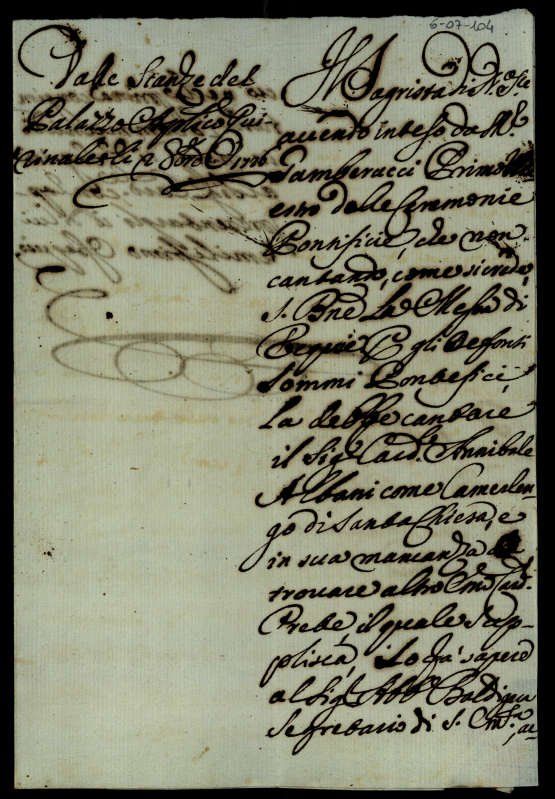 6-07-104
Dalle Stanze del
Palazzo Apostolico Qui-
rinale li 2
Il Sagrista di N. Sre
avendo inteso da Mr.
Gamberucci Primo Ma
estro delle Ceremonie
Pontificie, che non
cantando, come si crede,
S. Bne La Messa di
Requie p gli Deffonti
Sommi Pontefici,
La debbe cantare
il Sigr. Card. Annibale
Albani come Camerlen-
go di Santa Chiesa, e
in sua mancanza
trovare altro Emo Card.
Prete il quale sup-
plisca, Lo fa sapere
al Sigr. Abb.
Segretario di S. Emza,